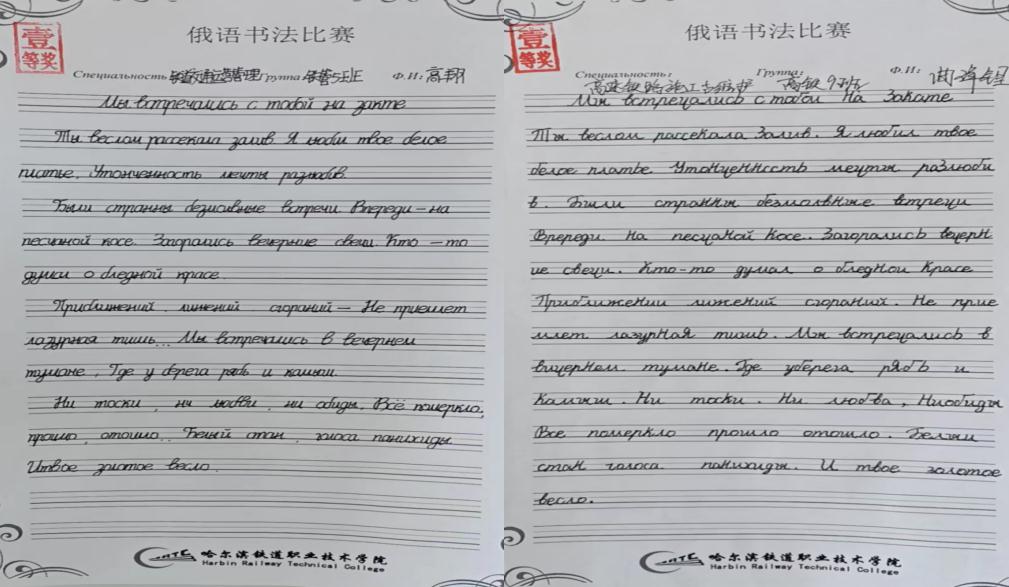 俄语书法比赛
壹
等奖
Специальность: 铁道交通运营管理 Группа: 铁营5班 Ф.И: 高翔
Мы встречались с тобой на закте
Ты веслом рассекала залив. Я люби твое белое
платье, Утонченность мечты разлюбив.
Были странны безмсивные встречи. Впереди-на
песчаной косе. Загорались вечерние свечи. Кто-то
думал о бледной красе.
Приближений, лижений, сгораний- Не приемлет
лазурная тишь... Мы встречались в вечернем
тумане, Где у берега рябь и камыш.
Ни тоски, ни любви, ни обиды, Всё померкло,
прошло, отошло.. Белый стан, голоса панихиды
Итвое золотое весло.
哈尔滨铁道职业技术学院
Harbin Railway Technical College
俄语书法比赛
壹
等奖
Специальность: Группа: Ф.И:
高铁9班
Мы встречались с тобои На Закате
Ты веслом рассекала Залив. Я любил твое
белое платье. Утонченность мечты разлюби
в. Были странны безмолвные встречи
Вререди. На песчаной Косе.. Загорались вечерн
ие свечи. Кто-то думал о бледнои Красе
Приближении лижений сгораний. Не прие
млет лазурНая тишь. Мы встречались в
вичернем тумане. Где уберега рябь и
Камыш. Ни тоски. Ни любва, Ниобиды
Все померкло прошло отошло. Белыи
стан голоса панихиды. И твое золотое
весло.
哈尔滨铁道职业技术学院
Harbin Railway Technical College